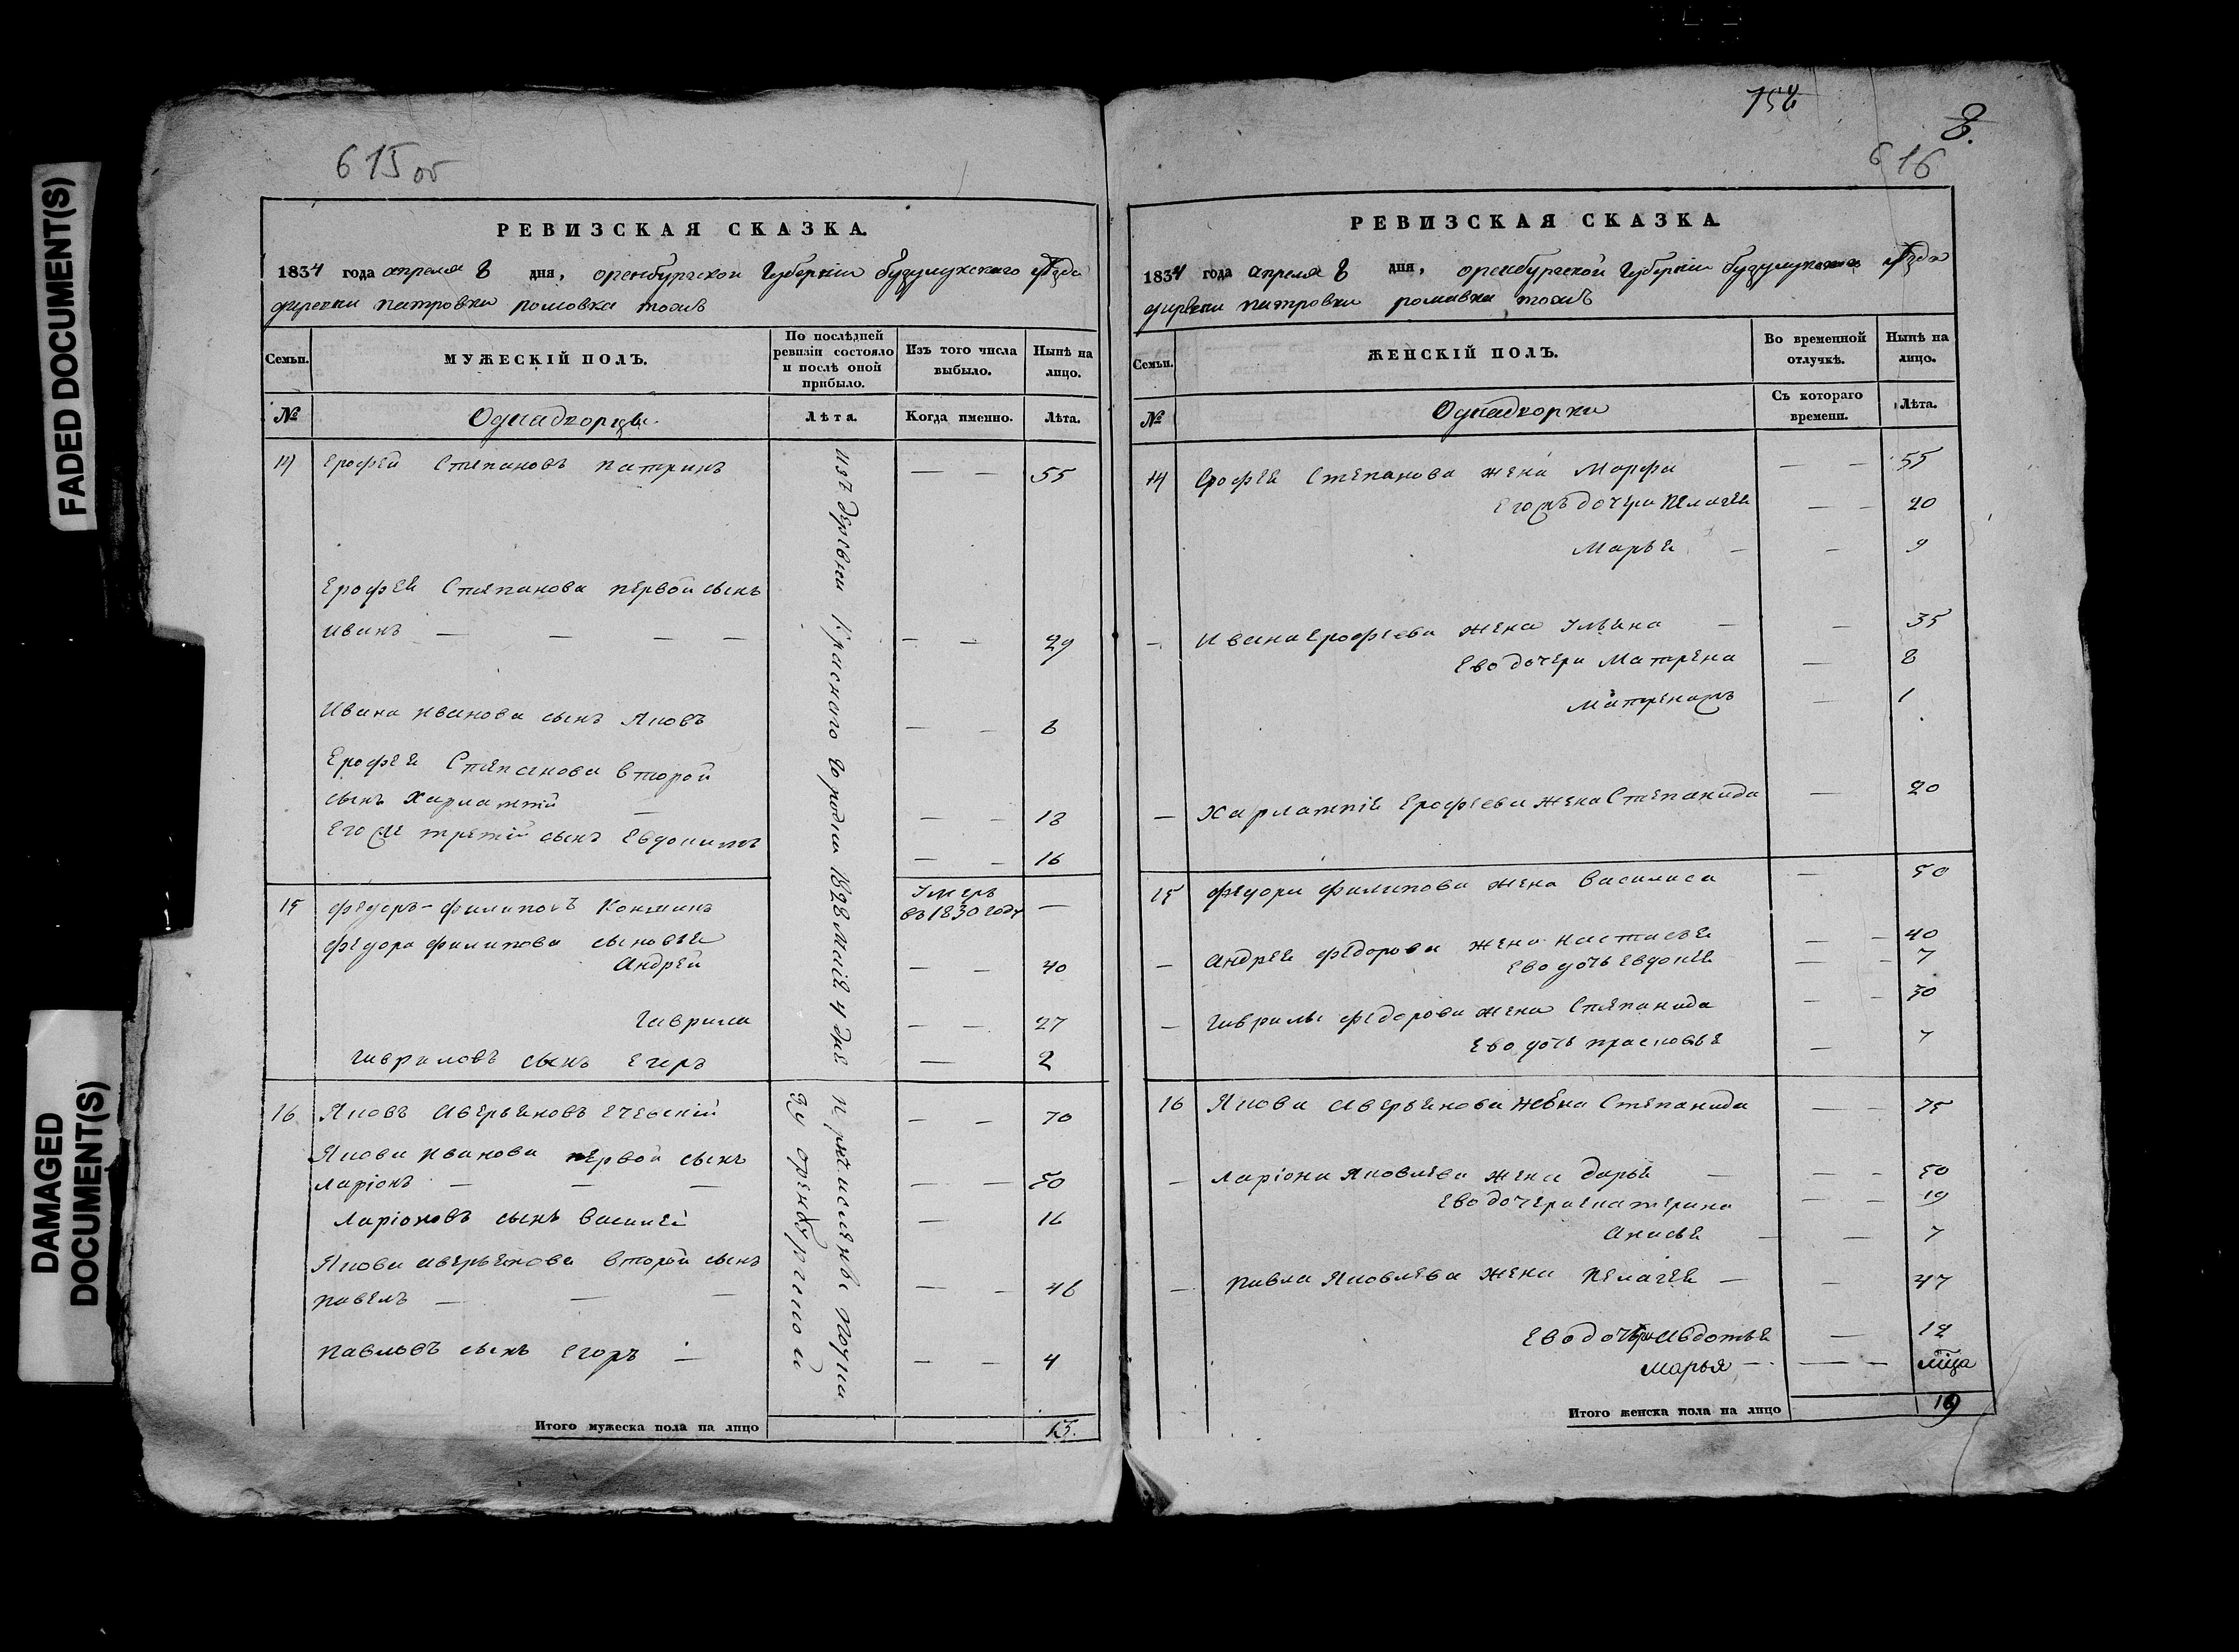 FADED DOCUMENT(S)
DAMAGED
DOCUMENT(S)
615 об
РЕВИЗСКАЯ СКАЗКА.
1834 года апреля 8 дня, оренбургской Губернии бузулукского уезда
Семьи.
МУЖЕСКІЙ ПОЛЪ.
По послѣдней
ревизіи состояло
и послѣ оной
прибыло.
Изъ того числа
выбыло.
Нынѣ на
лицо.
№
Однадворцы.
Лѣта.
Когда именно.
Лѣта.
14 Ерофей Степановъ — — 55
Ерофей Степанова первой сынъ
иванъ — — — — — — 29
Ивана иванова сынъ Яковъ — — 8
Ерофей Степанова второй
сынъ — — — 18
третій сынъ — — 16
15 федоръ-филиповъ
Умеръ
въ 1830 году —
федора филипова сыновьй
андрей — — 40
гаврила — — 27
гавриловъ сынъ Егеръ — 2
16 Яковъ аверьяновъ — — 70
Якова иванова первой сынъ
ларіонъ — — — — — 50
ларіоновъ сынъ василей — 16
Якова аверьянова второй сынъ
павелъ — — — — — 46
павловъ сынъ егоръ — — — 4
Итого мужеска пола на лицо 13.
изъ деревни Красного 1828 4
оренбургской
754
8.
616
РЕВИЗСКАЯ СКАЗКА.
1834 года апреля 8 дня, оренбургской Губернии бузулукскаго уезда
Семьи.
ЖЕНСКІЙ ПОЛЪ.
Во временной
отлучкѣ.
Нынѣ на
лицо.
№
Однадворки
Съ котораго
времени.
Лѣта.
14 Ерофей Степанова жена Марфа — — 55
дочери Пелагея — — 20
Марья — — 9
— Ивана Ерофеева жена Ульяна — — 35
Ево дочери Матрена — 8
— 1
— Ерофеева жена Степанида — 20
15 федора филипова жена Василиса — 50
— андрей федорова жена настасья — — 40
ево дочь евдокия — — 7
— гаврилы федорова жена Степанида — — 30
ево дочь прасковья — 7
16 Якова аверьянова жена Степанида — — 75
— ларіона яковлева жена дарья — — — 50
ево дочери екатерина — — 19
анисья — — 7
— павла яковлева жена пелагея — — 47
ево дочери авдотья — 12
марья — — —
Итого женска пола на лицо 19